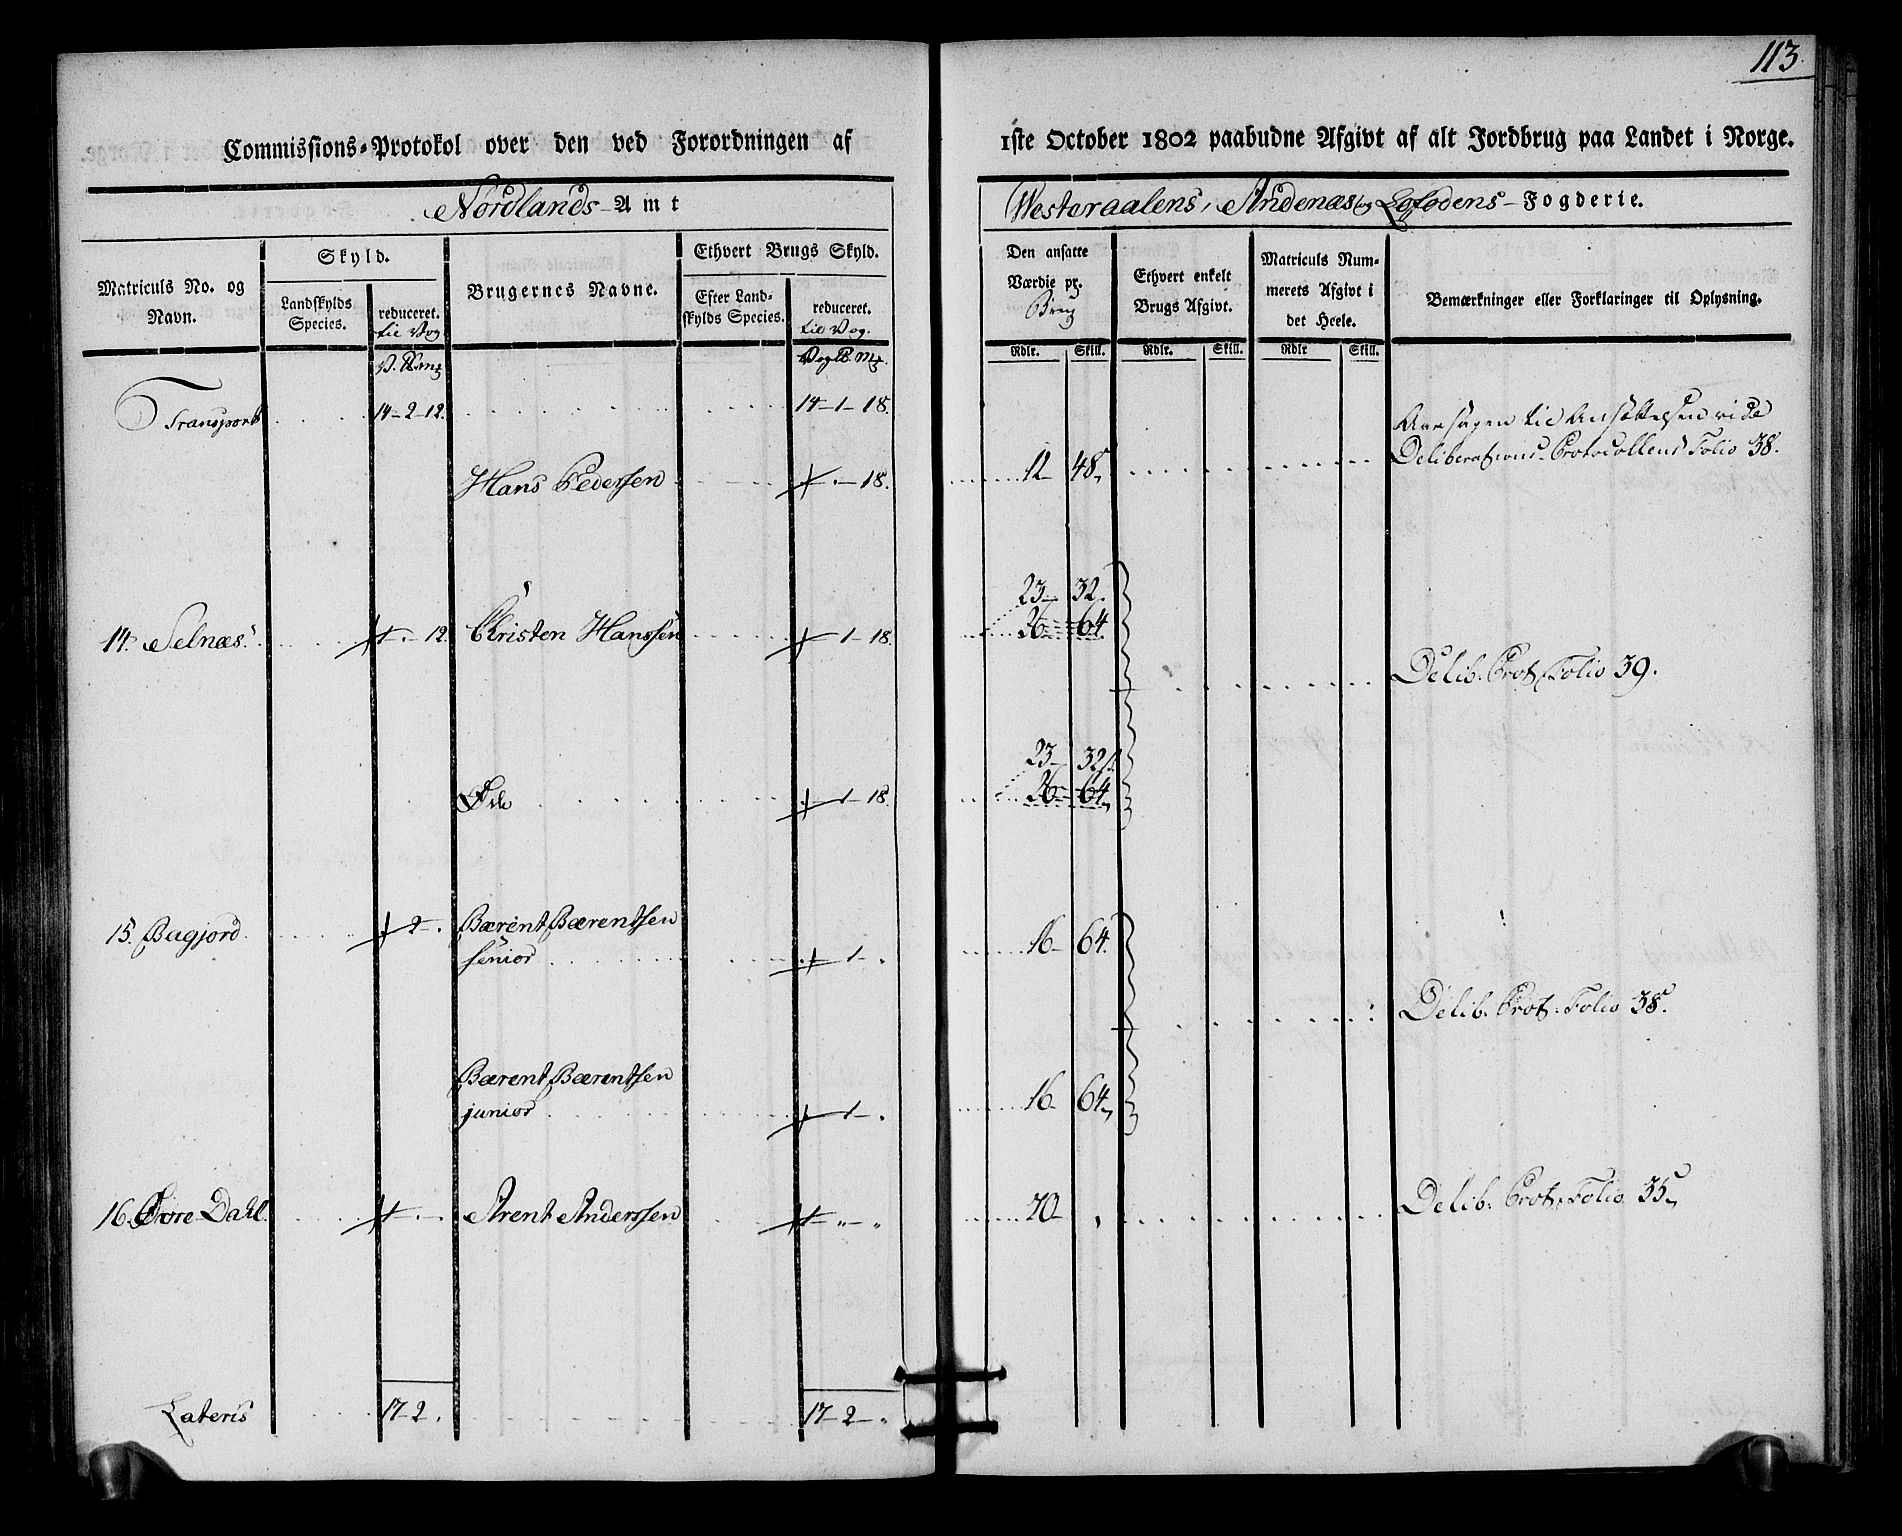 113.
Commissions-Protokol over den ved Forordningen af 1ste October 1802 paabudne Afgivt af alt Jordbrug paa Landet i Norge.
Nordlands-Amt
Westeraalens, Andenæs og Lofodens-Fogderie.
Matriculs No. og Navn.
Skyld.
Landskylds Species.
reduceret. til Vog
Brugernes Navne.
Ethvert Brugs Skyld.
Efter Landskylds Species.
reduceret. til Vog.
Den ansatte Værdie pr. Brug
Ethvert enkelt Brugs Afgivt.
Matriculs Nummerets Afgivt i det Heele.
Bemærkninger eller Forklaringer til Oplysning.
V. P. mk
Vog P. mk
Rdlr. Skill. Rdlr. Skill. Rdlr Skill.
Transport 14-2-12. 14-1-18.
Aarsagen til Ansættelsen vide
Deliberations-Protocollens Folio 38.
Hans Pedersen -18. 12 48
23 32
14. Selnæs 1-.-12 Christen Hanssen -1-18. 26 64
Delib. Prot. Folio 39.
23 32
Øde -1-18. 26 64
15. Bagjord -2-. Bærent Bærentsen
senior -1-. 16 64
Delib. Prot. Folio 38.
Bærent Bærentsen
junior -1-. 16 64
16. Øvre Dahl 1-.- Arent Anderssen 1-"-" 20
Delib. Prot. Folio 35
Lateris 17-2. 17-2-"